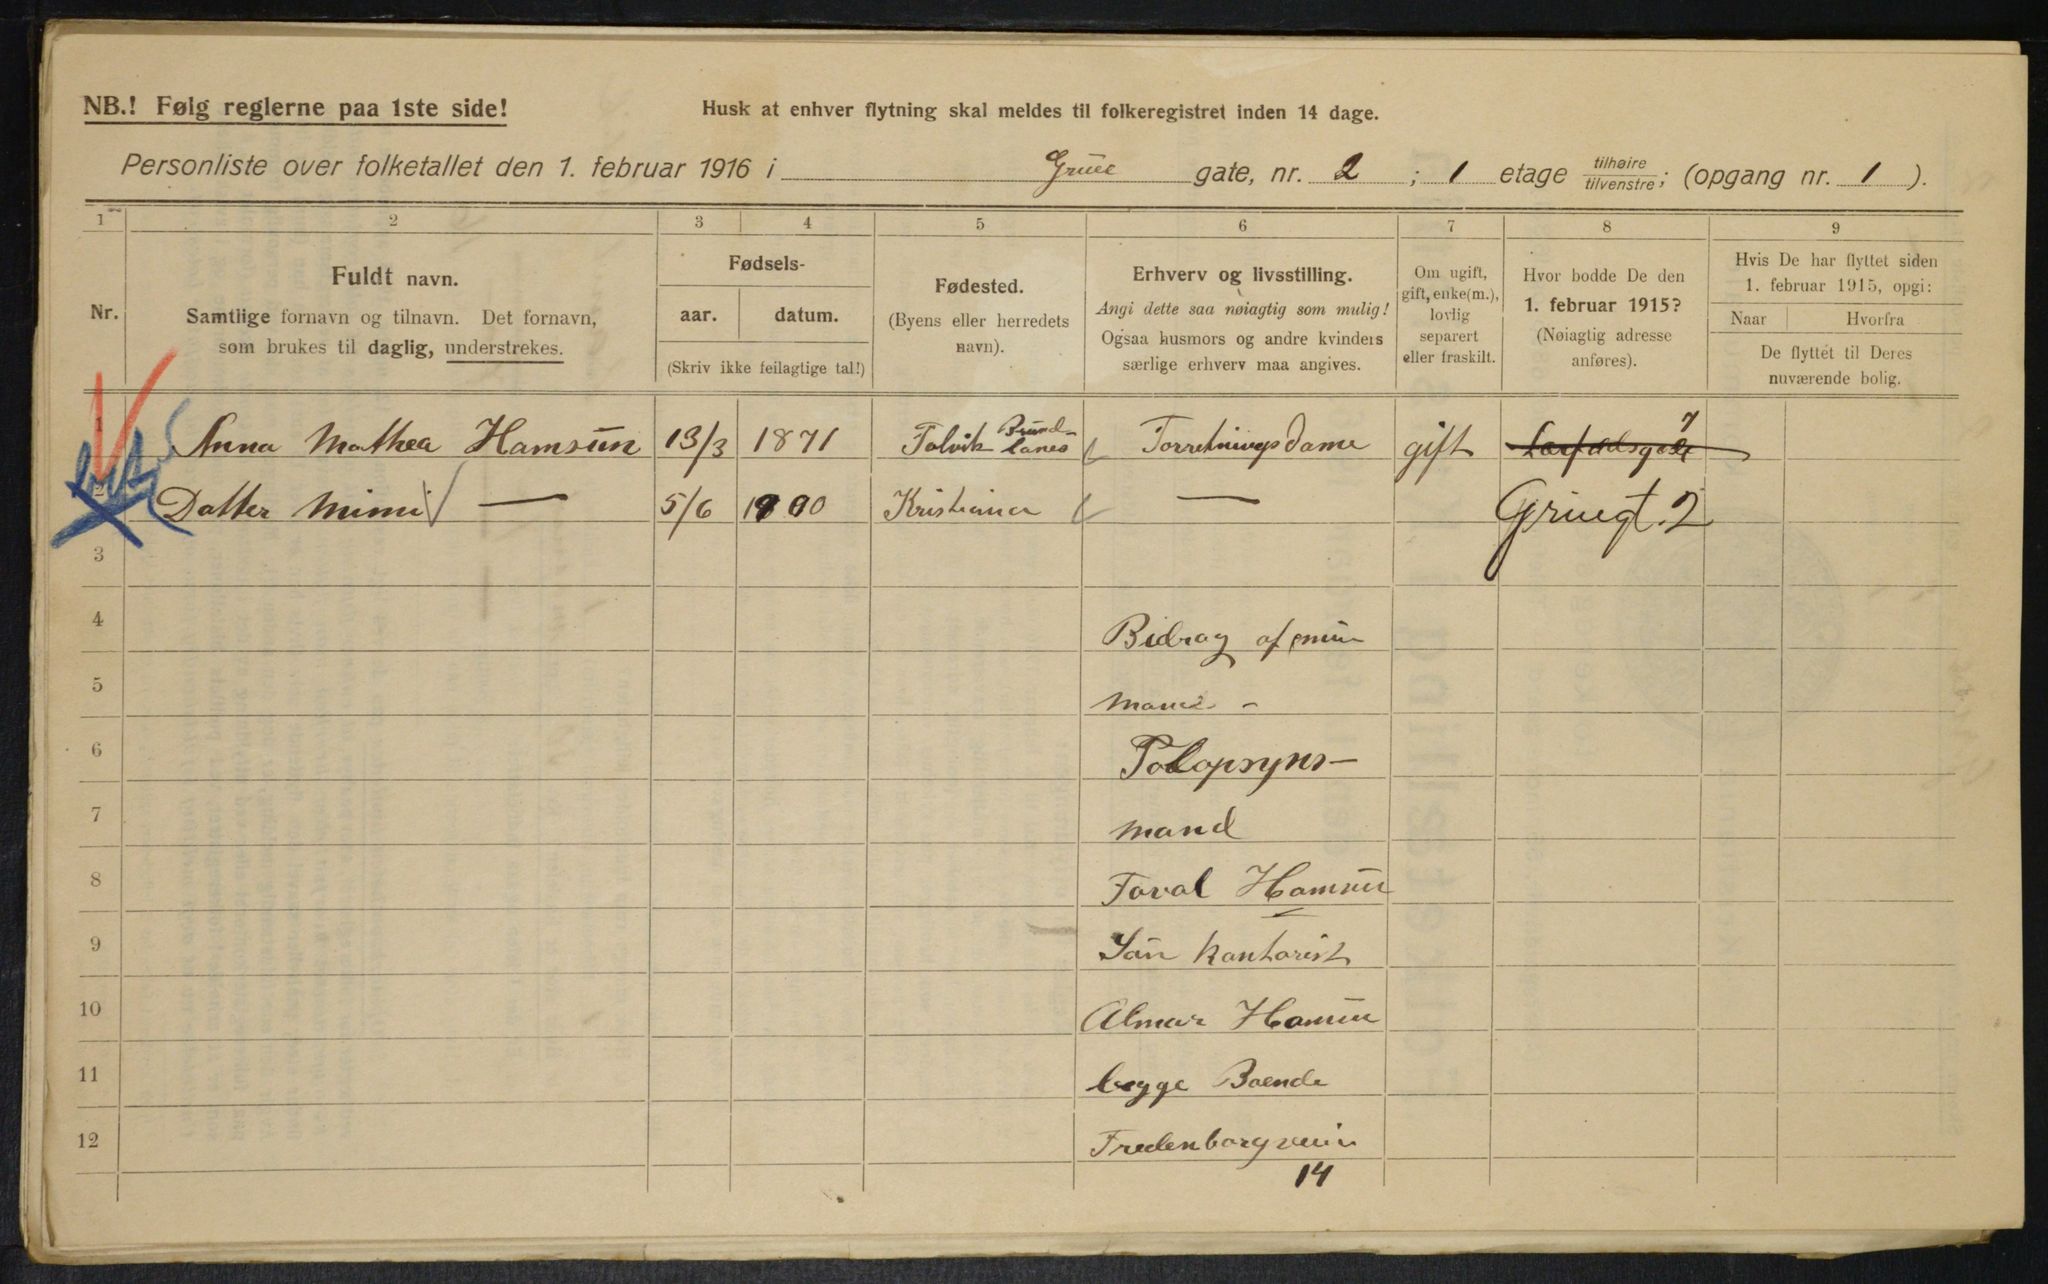 NB.! Følg reglerne paa 1ste side!
Husk at enhver flytning skal meldes til folkeregistret inden 14 dage.
Personliste over folketallet den 1. februar 1916 i Grüee gate, nr. 2 ; 1 etage tilhøire/tilvenstre; (opgang nr. 1 ).
1 2 3 4 5 6 7 8 9
Nr.
Fuldt navn.
Samtlige fornavn og tilnavn. Det fornavn,
som brukes til daglig, understrekes.
Fødsels-
aar. datum.
(Skriv ikke feilagtige tal!)
Fødested.
(Byens eller herredets
navn).
Erhverv og livsstilling.
Angi dette saa nøiagtig som mulig!
Ogsaa husmors og andre kvinders
særlige erhverv maa angives.
Om ugift,
gift, enke(m.),
lovlig
separert
eller fraskilt.
Hvor bodde De den
1. februar 1915?
(Nøiagtig adresse
anføres).
Hvis De har flyttet siden
1. februar 1915, opgi:
Naar Hvorfra
De flyttet til Deres
nuværende bolig.
1 Anna Mathea Hamsün 13/3 1871 Tolvik Bründ-lanes Forretningsdame gift
2 Datter Mimi — 5/6 1900 Kristiania — Grüegt. 2
3
4 Bidrag af min
5 mand -
6 Tolopsyns-
7 mand
8 Toval Hamsün
9 Sön Kontorist
10 Almar Hamsün
11 begge Boende
12 Fredenborgveiin
14